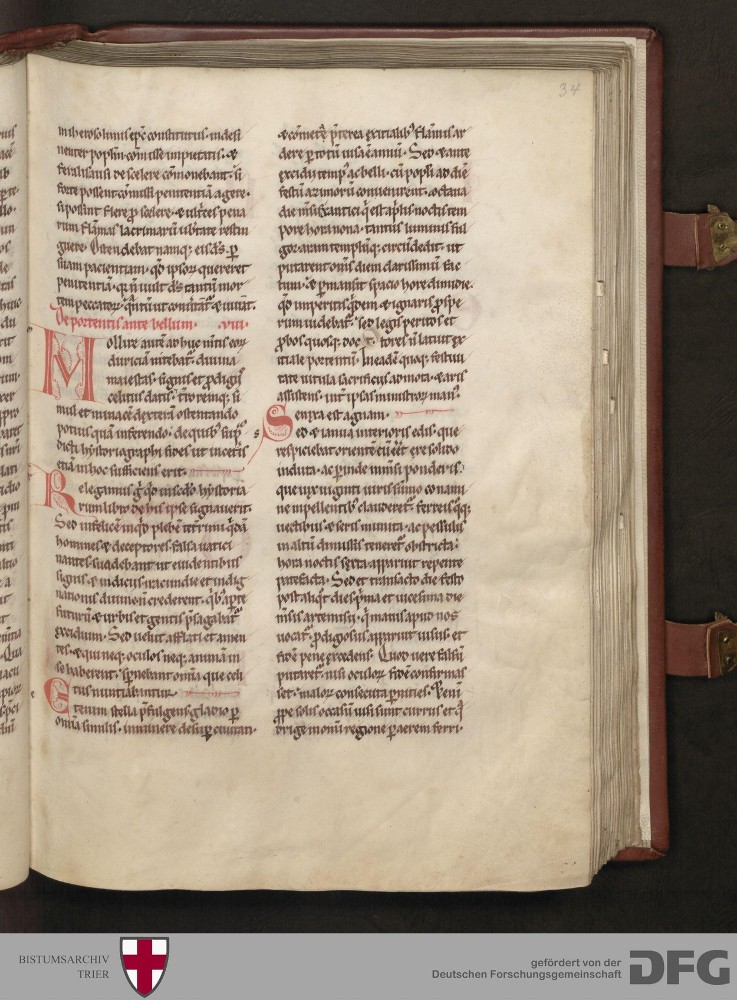 34
in iherosolimis epc constitutus. indesi
nenter poplm comisse imputatis. &
ferali ausu de scelere comonebant. si
forte possent comissi penitentiā agere.
si possint flere p scelere. & ultrices pena
rum flāmas lacrimarū ubtate restin
guere. Ostendebat namq; eis ds. p
suam pacientiam. qd ipsoꝝ quereret
penitentiā. q; n uult ds tantū mor
tem peccatoꝝ. qntū ut conutat & uiuat.
De portentis ante bellum. .viii.
Mollire autē adhuc mtis eoꝝ
duriciam nitebat diuina
maiestas. signis et pdigiis
celitus datis. Timoremq; si
mul et minacē dexterā ostentando
potius quā inferendo. de quib; sup
dicti hystoriagraphi fides ut in ceteris
etiā in hoc sufficiens erit.
Relegamus g qd in sexto hystoria
rum libro de his ipse signauerit.
Sed infelicē inqd plebē terrimi qdā
homines & deceptores falsa uatici
nantes suadebant ut euidentibus
signis. & indiciis iracundie et indig
nationis diuinę n crederent. qb; apte
futurū & urbis et gentis psagabat
excidium. Sed uelut afflati et amen
tes & qui neq; oculos neq; animā in
se haberent. spnebant omia que celi
tus nuntiabantur
Etenim stella pfulgens gladio p
omia similis. imminere desup ciuitati.
& cometę pterea exitialib; flāmis ar
dere p totū uisa ē annū. Sed & ante
excidii temp ac belli. cū popli ad diē
festū azimorū conuenirent. octaua
die msis xantici q est aprilis noctis tem
pore hora nona. tantus luminis ful
gor aram templūq; circūdedit. ut
putarent oms diem clarissimū fac
tum. & pmansit spacio hore dimidie.
qd imperitis qdem & ignaris pspe
rum uidebat. sed legis peritos et
pbos quosq; doctores n latuit ex
itiale portentū. In eadē quoq; festiui
tate uitula sacrificiis admota. & aris
assistens. int ipsas ministroꝝ man
enixa est agnam.
Sed & ianua interioris edis. que
respiciebat orientē cū eēt ere solido
induta. ac pinde immsi ponderis.
que uix uiginti uiris summo conami
ne impellentib; clauderet. ferreisq;
uectibus & seris munita. ac pessulis
in altū dimissis teneret obstricta.
hora noctis sexta apparuit repente
patefacta. Sed et transacto die festo
post aliqt dies pma et uicesima die
msis artemisii. q maius apud nos
uocat. pdigiosus apparuit uisus. et
fidē pene excedens. Quod uere falsū
putaret. nisi oculoꝝ fidē confirmas
set. maloꝝ consecuta pnities. Deni
qpe solis occasū uisi sunt currus et q
drige in omi regione p aerem ferri.
BISTUMSARCHIV
TRIER
gefördert von der
Deutschen Forschungsgemeinschaft
DFG